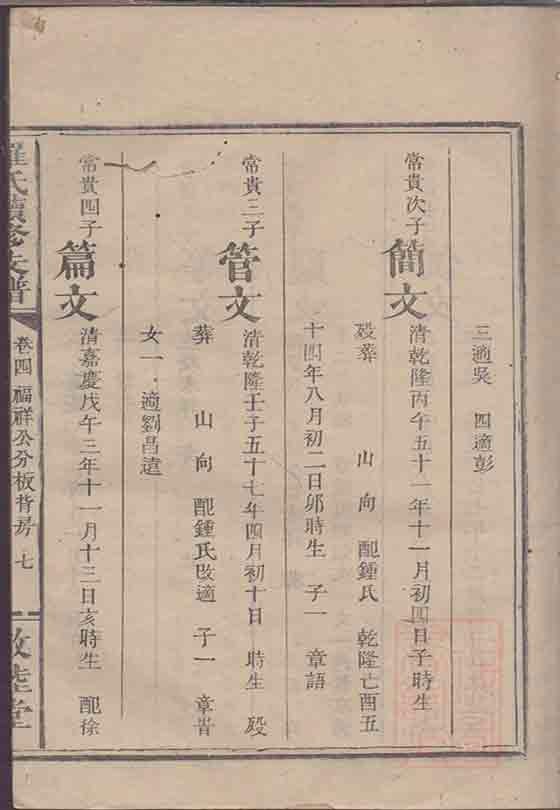 三適吳 四適彭
常貴次子
簡文
清乾隆丙午五十一年十一月初四日子時生
歿葬 山 向 配鍾氏 乾隆己酉五
十四年八月初二日卯時生 子一 章語
常貴三子
管文
清乾隆壬子五十七年四月初十日 時生 歿
葬 山 向 配鍾氏改適 子一 章昔
女一 適劉昌遠
常貴四子
篇文
清嘉慶戊午三年十一月十三日亥時生 配徐
羅氏續修支譜
卷四 福祥公分板背房 七
敦睦堂